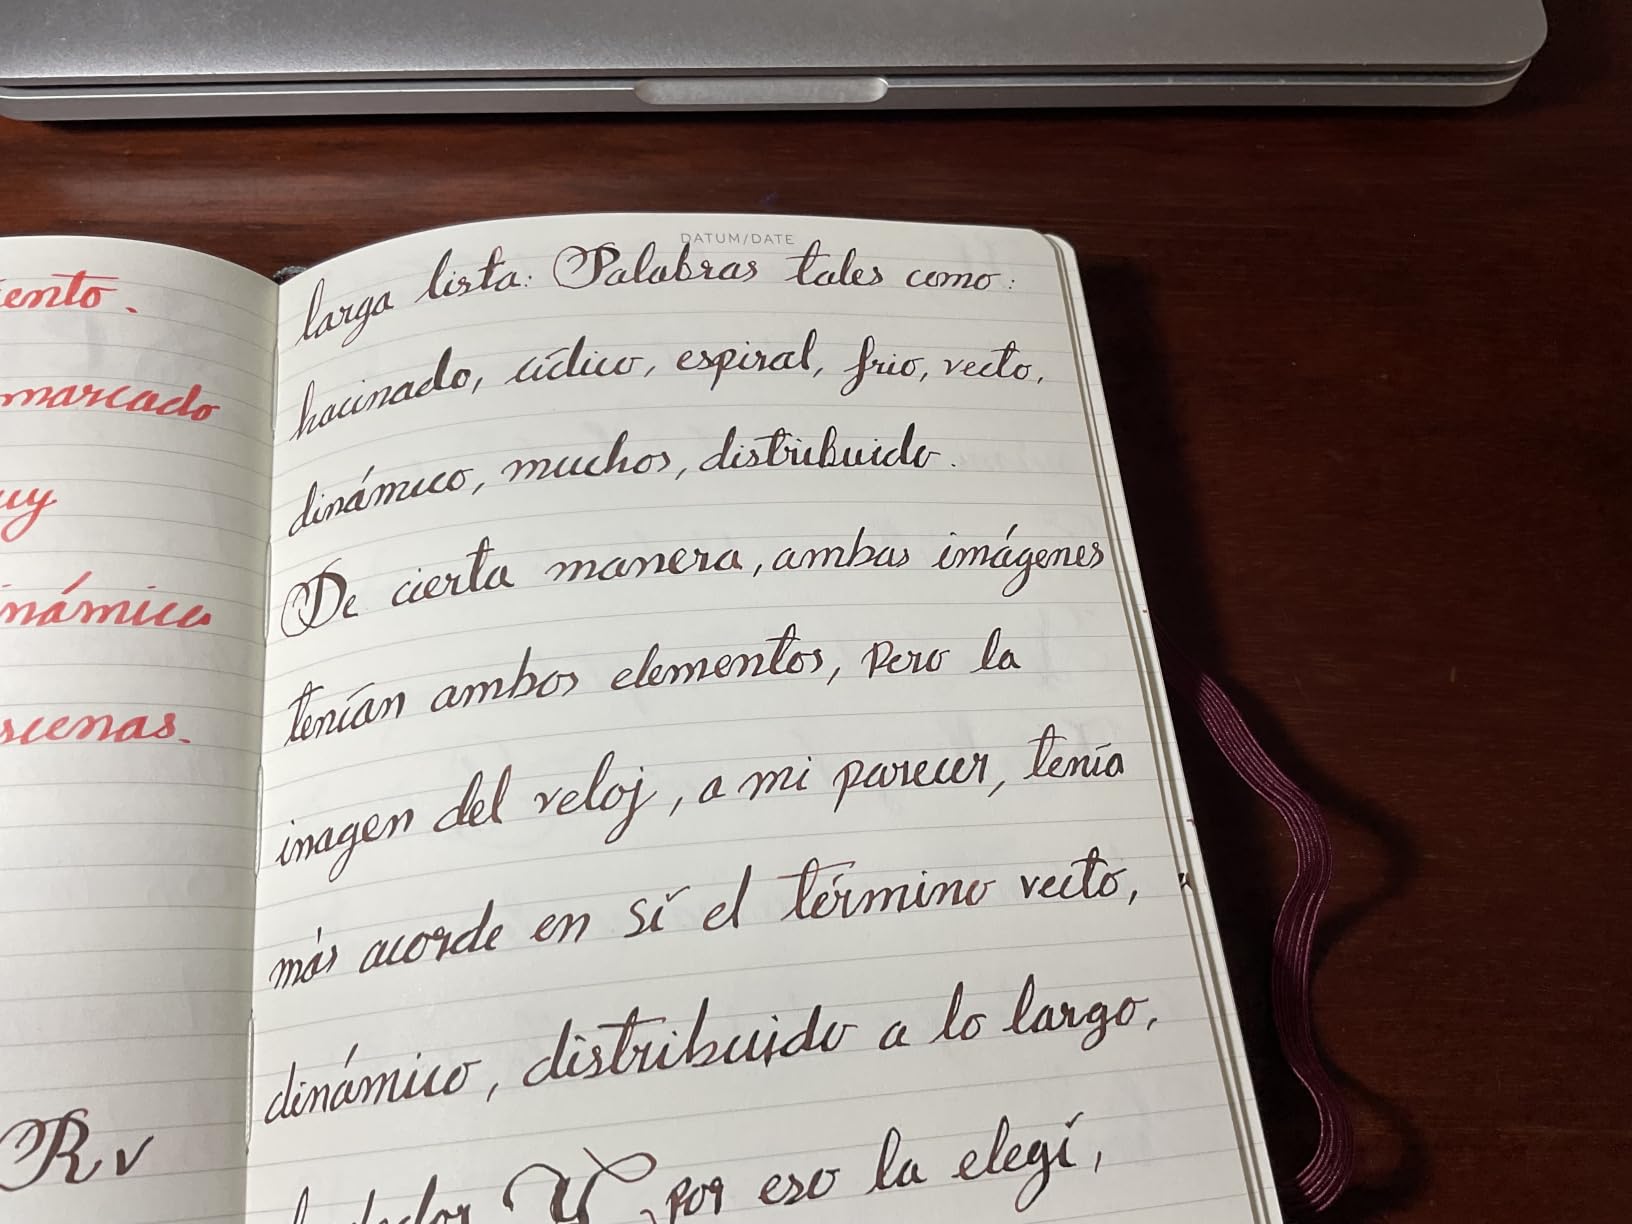 DATUM/DATE
larga lista: Palabras tales como:
hacinado, cíclico, espiral, frio, recto,
dinámico, muchos, distribuido.
De cierta manera, ambas imágenes
tenían ambos elementos, pero la
imagen del reloj, a mi parecer, tenía
más acorde en sí el término recto,
dinámico, distribuido a lo largo,
Y por eso la elegí,
iento.
marcado
uy
námico
scenas.
R v